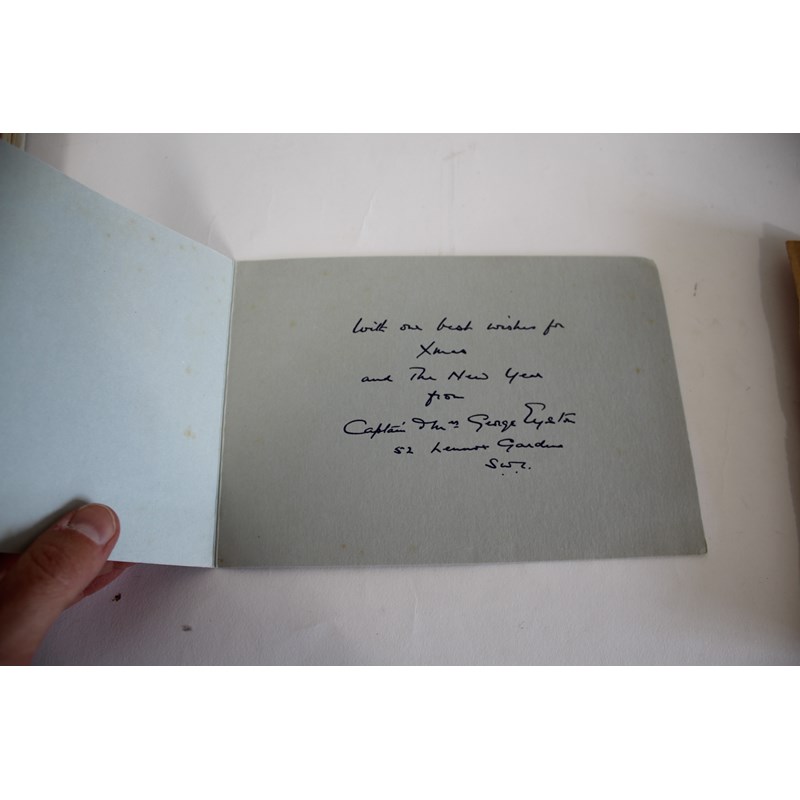 With our best wishes for
Xmas
and The New Year
from
Captain & Mrs George Eyston
52 Lennox Gardens
S.W.1.